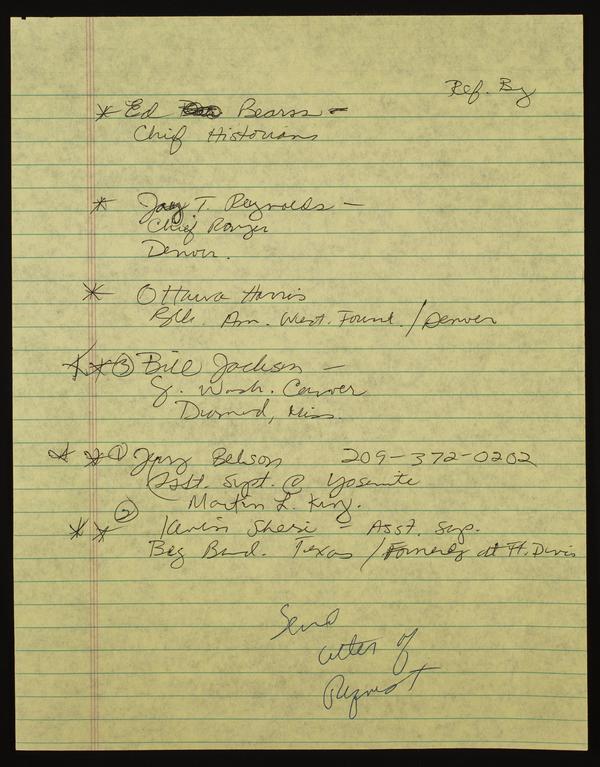 Ref. By
* Ed Bearss -
Chief Historians
* T Reynolds -
Chief Ranger
Denver.
* Ottawa Harris
Blk. Am. West. Found. / Denver
* * ③ Bill Jackson -
G. Wash. Carver
Diamond, Miss.
* * ① Jerry Belson 209-372-0202
Asst. Supt. @ Yosemite
Martin L. King.
②
* * - Asst. Sup.
Big Bend. Texas / Formerly at Ft. Davis
Send
letter of
Request